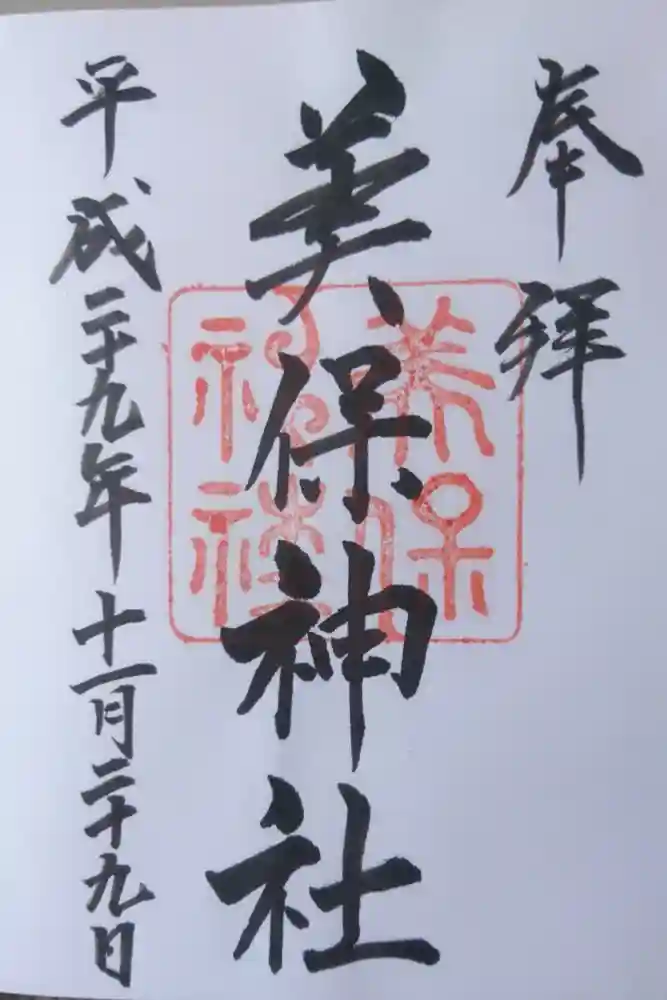 奉拝
美保神社
美保神社
平成二十九年十一月二十九日